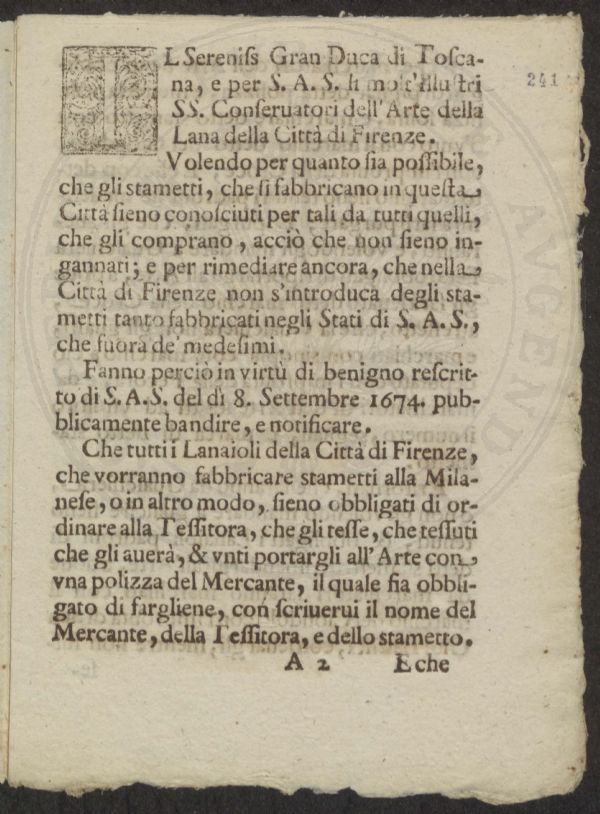 IL Sereniſs Gran Duca di Toſca-
na, e per S. A. S. li molt'Illuſtri
SS. Conſeruatori dell'Arte della
Lana della Città di Firenze.
Volendo per quanto ſia poſſibile,
che gli stametti, che ſi fabbricano in queſta
Città ſieno conoſciuti per tali da tutti quelli,
che gli comprano, acciò che non ſieno in-
gannati; e per rimediare ancora, che nella
Città di Firenze non s'introduca degli sta-
metti tanto fabbricati negli Stati di S. A. S.,
che fuora de' medeſimi.
Fanno perciò in virtù di benigno reſcrit-
to di S. A. S. del dì 8. Settembre 1674. pub-
blicamente bandire, e notificare.
Che tutti i Lanaioli della Città di Firenze,
che vorranno fabbricare stametti alla Mila-
neſe, o in altro modo, ſieno obbligati di or-
dinare alla Teſſitora, che gli teſſe, che teſſuti
che gli auerà, & vnti portargli all'Arte con
vna polizza del Mercante, il quale ſia obbli-
gato di fargliene, con ſcriuerui il nome del
Mercante, della Teſſitora, e dello stametto.
A 2 E che
241